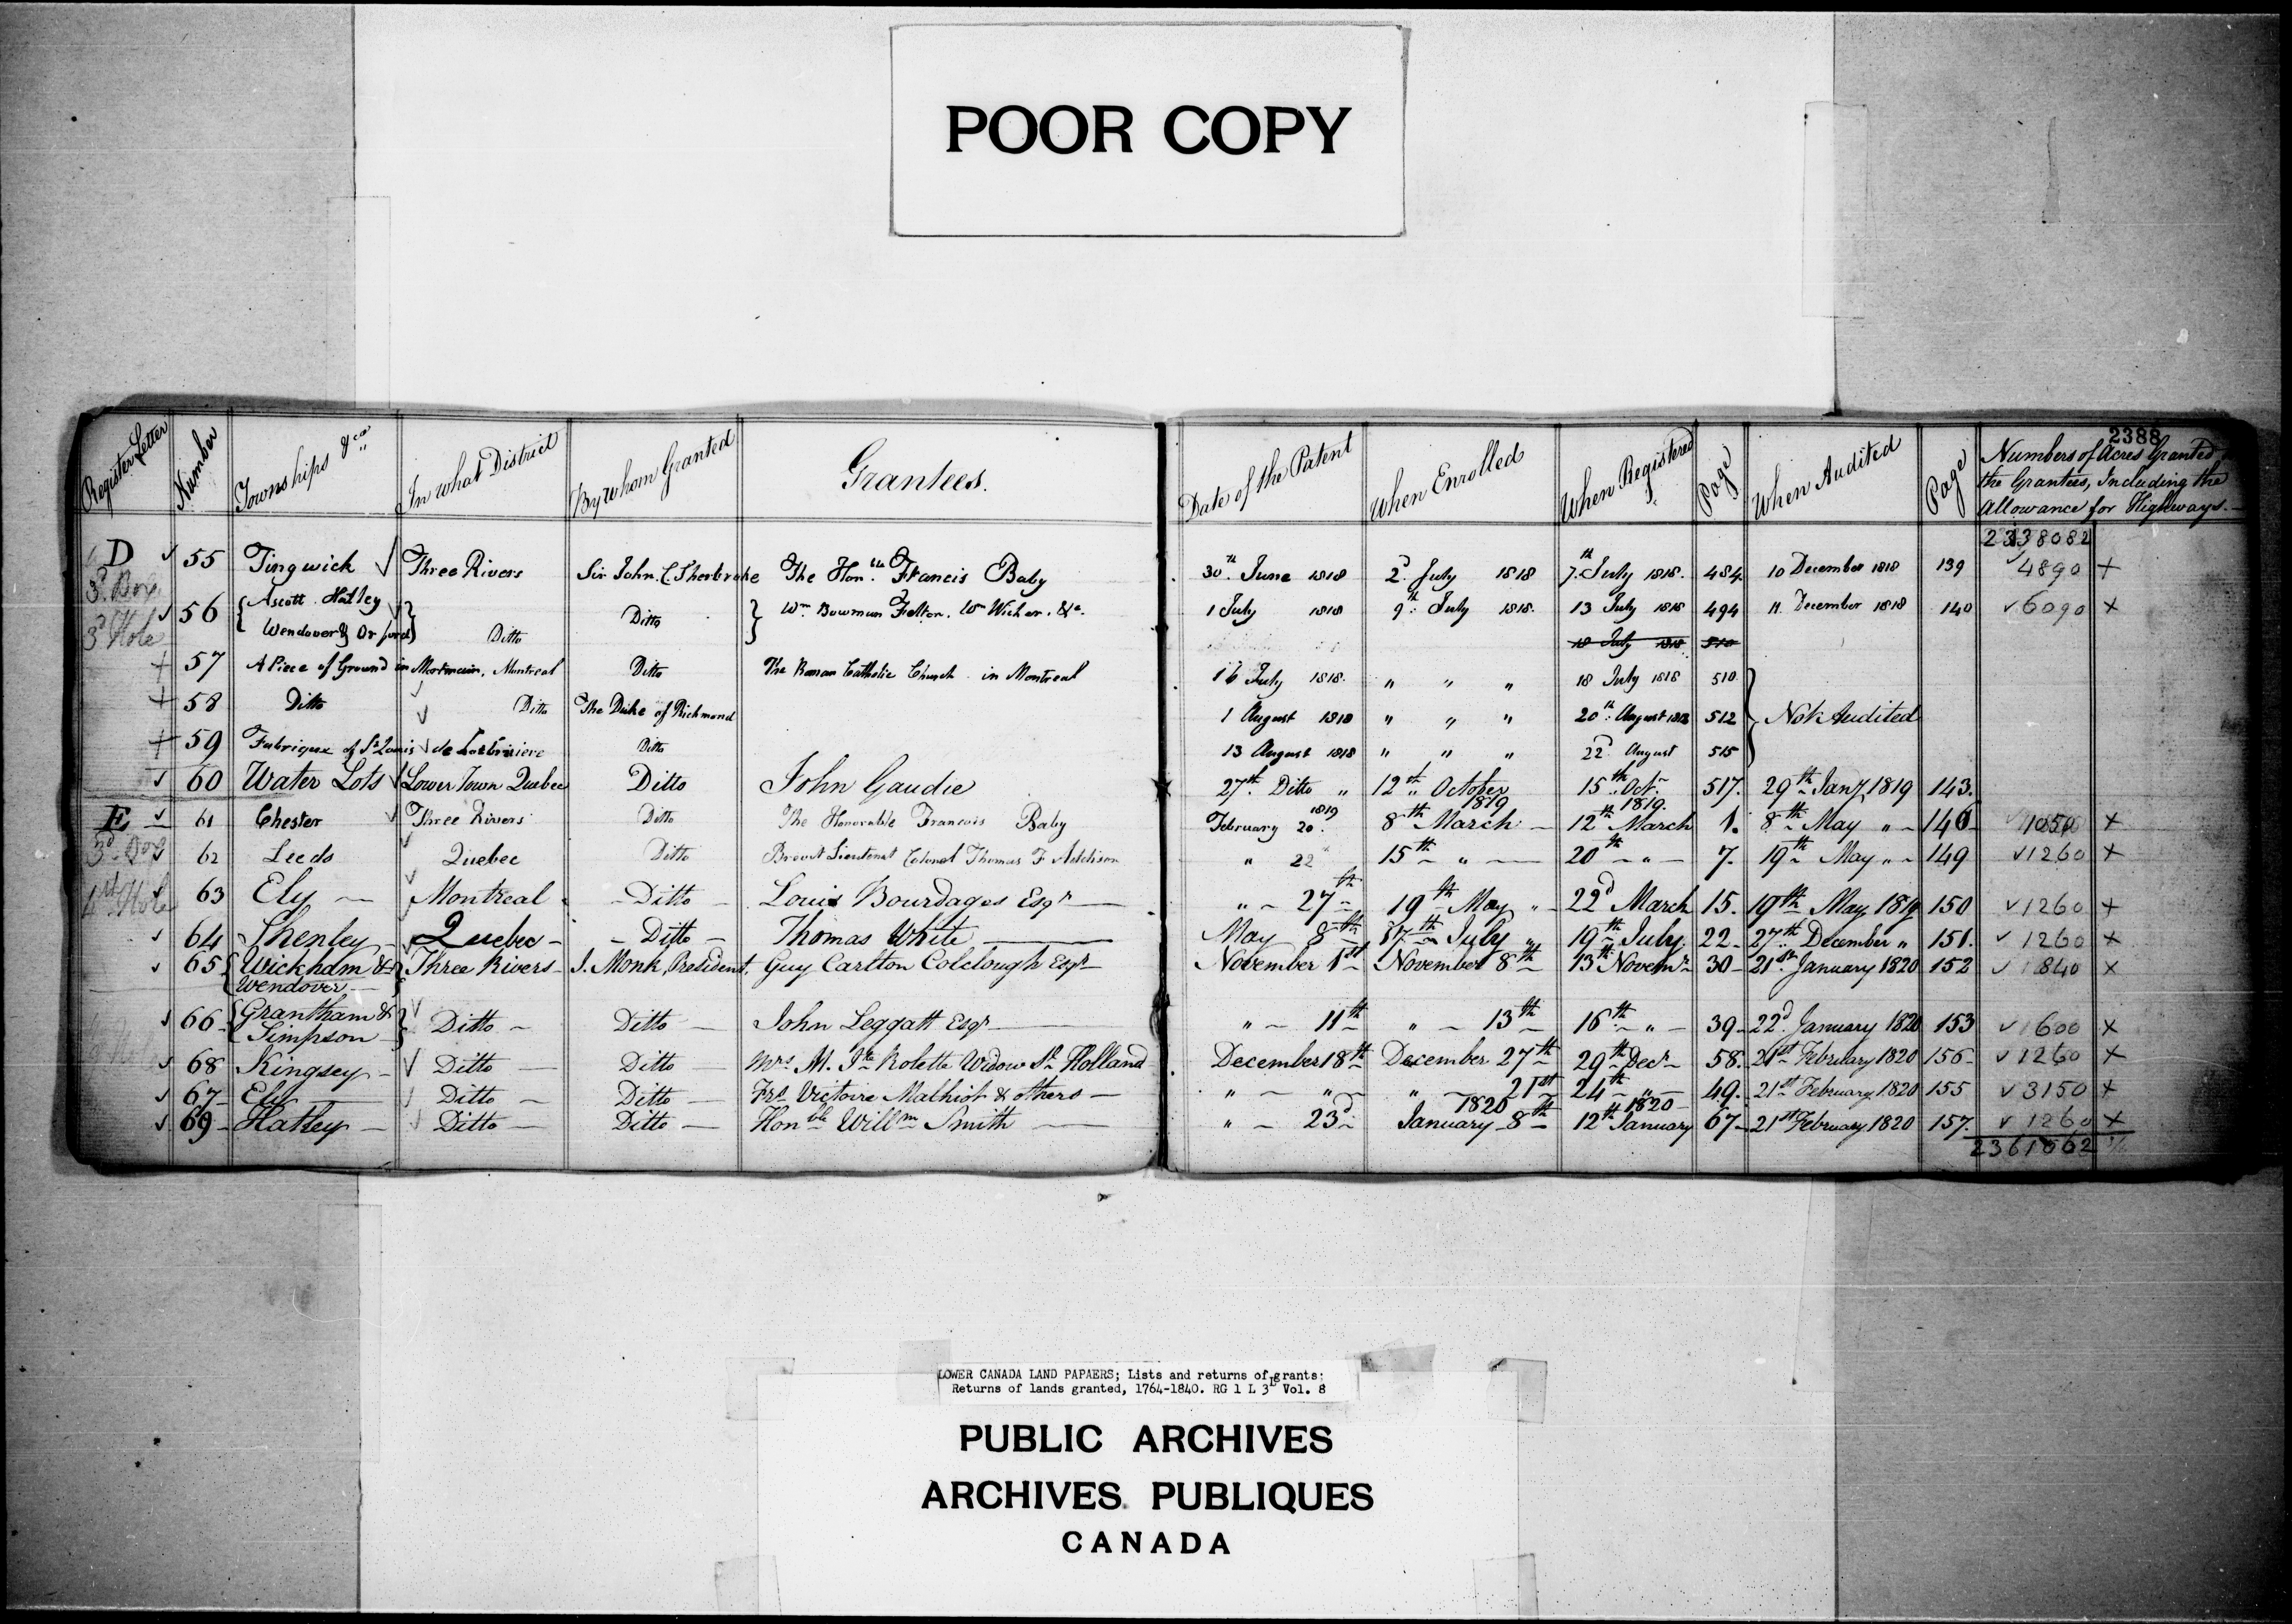 POOR COPY
2388
Register Letter Number Townships &ca In what District By whom Granted Grantees. Date of the Patent When Enrolled When Registered Page When Audited Page Numbers of Acres Granted
the Grantees, Including the
Allowance for Highways.
2338082
D 55 Tingwick Three Rivers Sir John. C. Sherbroke The Honble Francis Baby 30th June 1818 2d July 1818 7th July 1818. 484. 10 December 1818 139 4890 +
3d Box
56 { Ascott Hatley Wendover & Orford } Ditto Ditto } Wm Bowman Felton. Wm Wicher. &c. 1 July 1818 9th July 1818. 13 July 1818 494 11. December 1818 140 6090 +
3d Hole
18 July 1818 510
+ 57 A Piece of Ground in Montreal Ditto The Roman Catholic Church in Montreal 16 July 1818. " " " 18 July 1818 510
+ 58 Ditto Ditto The Duke of Richmond 1 August 1818 " " " 20th August 1818 512 } Not Audited
+ 59 Fabrique of St Louis de Lotbiniere Ditto 13 August 1818 " " " 22d August 515
60 Water Lots Lower Town Quebec Ditto John Gaudie 27th Ditto " 12th October 15th Oct. 517. 29th Jany 1819 143.
1819 1819 1819.
E 61 Chester Three Rivers Ditto The Honorable Francois Baby February 20. 8th March 12th March 1. 8th May " 146 1050 +
3d Box 62 Leeds Quebec Ditto Brevet Lieutenat Colonel Thomas F Addison " 22 15th " 20th " 7. 19th May " 149 1260 +
4th Hole 63 Ely Montreal Ditto Louis Bourdages Esqr " 27th 19th May " 22d March 15. 19th May 1819 150 1260 +
64 Shenley Quebec Ditto Thomas White May 8th 17th July " 19th July 22 27th December " 151. 1260 +
65 { Wickham & Three Rivers J. Monk, President. Guy Carlton Colclough Esqr November 1st November 8th 13th Novemr 30 21st January 1820 152 840 +
Wendover }
66 { Grantham & Simpson } Ditto Ditto John Leggatt Esqr " 11th " 13th 16th " 39 22d January 1820 153 600 +
68 Kingsey Ditto Ditto Mrs M. Jte Rolette Widow Sl Holland December 18th December 27th 29th Decr 58. 21st February 1820 156 1260 +
67 Ely Ditto Ditto Frs Victoire Malhiot & others " " " 21st 24th " 49. 21st February 1820 155 3150 +
1820 1820
69 Hatley Ditto Ditto Honble Willm Smith " 23d January 8th 12th January 67 21st February 1820 157. 1260 +
2361062
LOWER CANADA LAND PAPAERS; Lists and returns of grants:
Returns of lands granted, 1764-1840. RG 1 L 3L Vol. 8
PUBLIC ARCHIVES
ARCHIVES PUBLIQUES
CANADA